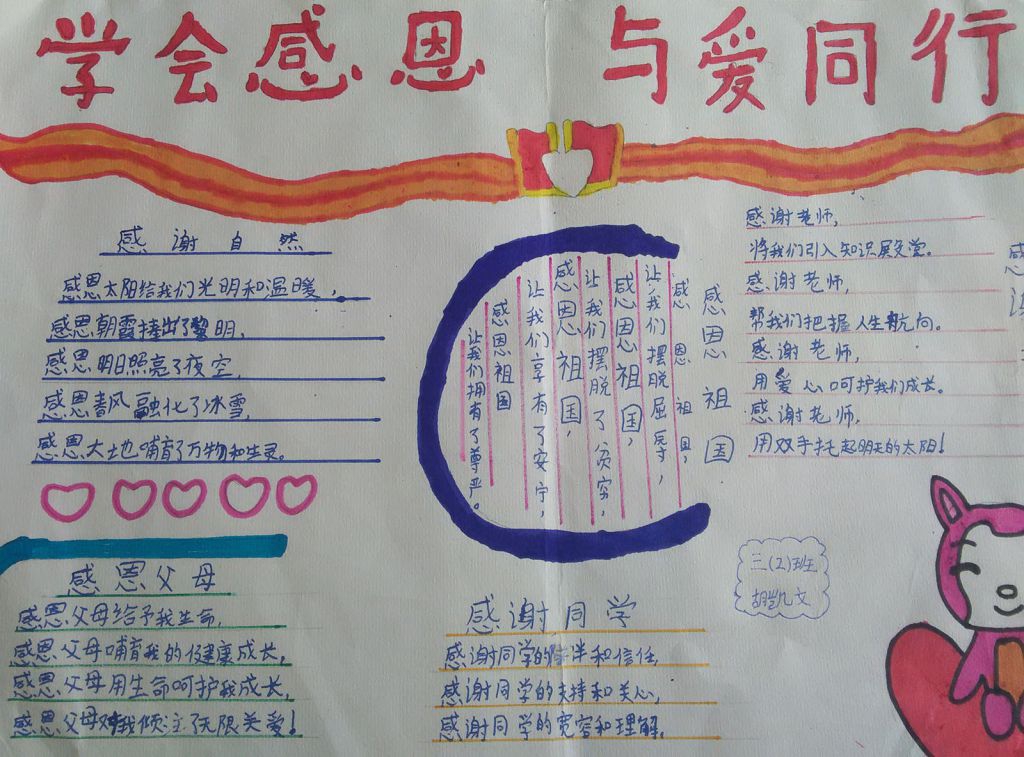 学会感恩 与爱同行
感谢自然
感恩太阳给我们光明和温暖，
感恩朝霞捧出了黎明，
感恩明月照亮了夜空，
感恩春风融化了冰雪，
感恩大地哺育了万物和生灵。
感恩父母
感恩父母给予我生命，
感恩父母哺育我的健康成长，
感恩父母用生命呵护我成长，
感恩父母对我倾注了无限关爱！
感恩祖国
感恩祖国，
让我们摆脱屈辱，
感恩祖国，
让我们摆脱了贫穷，
感恩祖国，
让我们享有了安宁，
感恩祖国
让我们拥有了尊严。
感谢同学
感谢同学的陪伴和信任，
感谢同学的支持和关心，
感谢同学的宽容和理解。
感谢老师，
将我们引入知识殿堂。
感谢老师，
帮我们把握人生航向。
感谢老师，
用爱心呵护我们成长。
感谢老师，
用双手托起明天的太阳！
感
三(2)班
胡凯文